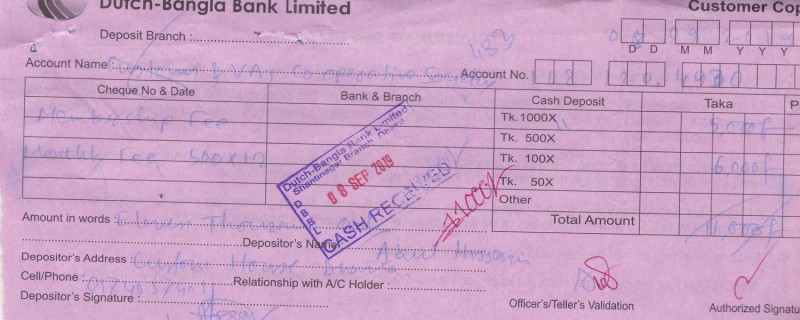 Dutch-Bangla Bank Limited
Customer Cop
Deposit Branch :
483
08 09 2019
D D M M Y Y Y
Account Name: & VAT Co-operative Society Account No. 108 120.
Cheque No & Date Bank & Branch Cash Deposit Taka P
Membership Fee Tk. 1000X 5,000/-
Tk. 500X
Monthly Fee 500x12 Tk. 100X 6,000/-
Tk. 50X
Other
Total Amount 11,000/-
Dutch-Bangla Bank Limited
Shantinagar Branch, Dhaka
08 SEP 2019
DBBL
CASH RECEIVED
11000/-
Amount in words Eleven Thousand
Depositor's Name: Abul Hossain
Depositor's Address : Custom House
Cell/Phone : Relationship with A/C Holder :
Depositor's Signature :
Officer's/Teller's Validation
Authorized Signatu